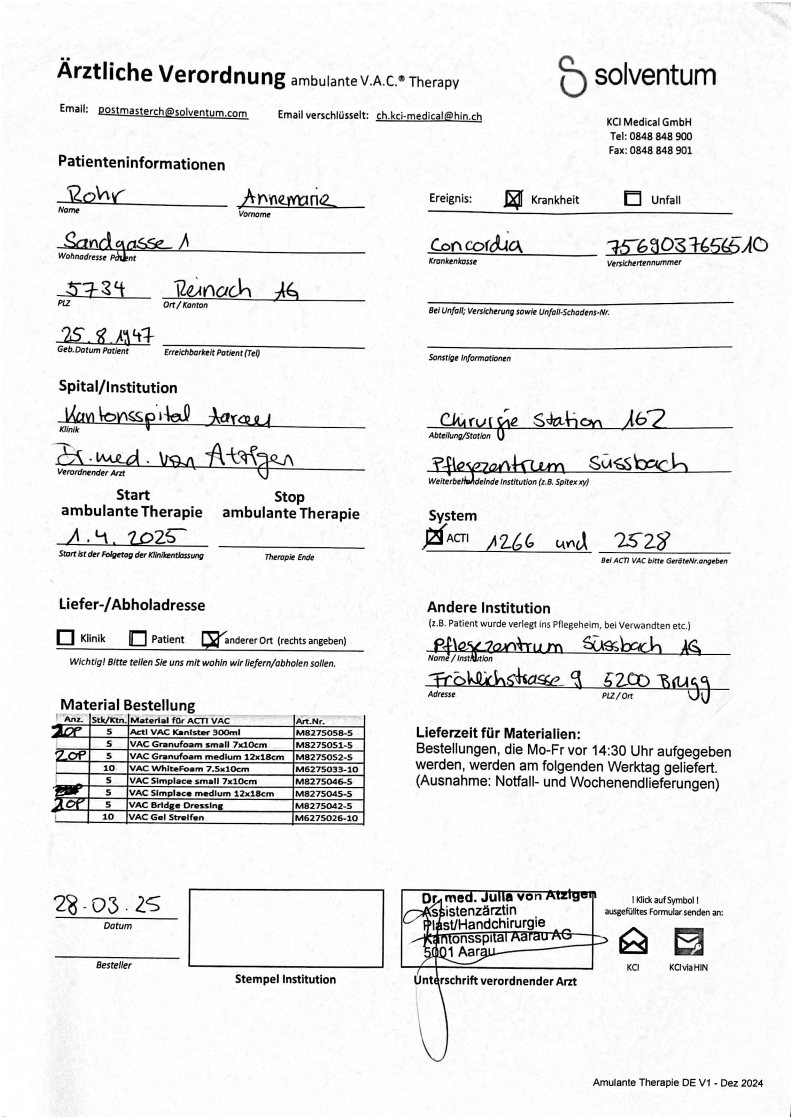 Ärztliche Verordnung ambulante V.A.C.® Therapy
solventum
Email: postmasterch@solventum.com Email verschlüsselt: ch.kci-medical@hin.ch
KCI Medical GmbH
Tel: 0848 848 900
Fax: 0848 848 901
Patienteninformationen
Rohr Annemarie
Name Vorname
Ereignis: Krankheit Unfall
Sandgasse 1
Wohnadresse Patient
Concordia 7569037656510
Krankenkasse Versichertennummer
5734 Reinach AG
PLZ Ort / Kanton
Bei Unfall; Versicherung sowie Unfall-Schadens-Nr.
25.8.1947
Geb.Datum Patient Erreichbarkeit Patient (Tel)
Sonstige Informationen
Spital/Institution
Kantonsspital Aarau
Klinik
Chirurgie Station 162
Abteilung/Station
Dr. med. von Atzigen
Verordnender Arzt
Pflegezentrum Süssbach
Weiterbehandelnde Institution (z.B. Spitex xy)
Start ambulante Therapie
Stop ambulante Therapie
1.4.2025
Start ist der Folgetag der Klinikentlassung Therapie Ende
System
ACTI 1266 und 2528
Bei ACTI VAC bitte GeräteNr.angeben
Liefer-/Abholadresse
Klinik Patient anderer Ort (rechts angeben)
Wichtig! Bitte teilen Sie uns mit wohin wir liefern/abholen sollen.
Andere Institution
(z.B. Patient wurde verlegt ins Pflegeheim, bei Verwandten etc.)
Pflegezentrum Süssbach AG
Name / Institution
Fröhlichstrasse 9 5200 Brugg
Adresse PLZ / Ort
Material Bestellung
Anz. Stk/Ktn. Material für ACTI VAC Art.Nr.
2OP 5 Acti VAC Kanister 300ml M8275058-5
5 VAC Granufoam small 7x10cm M8275051-5
2OP 5 VAC Granufoam medium 12x18cm M8275052-5
10 VAC WhiteFoam 7.5x10cm M6275033-10
5 VAC Simplace small 7x10cm M8275046-5
5 VAC Simplace medium 12x18cm M8275045-5
2OP 5 VAC Bridge Dressing M8275042-5
10 VAC Gel Streifen M6275026-10
Lieferzeit für Materialien:
Bestellungen, die Mo-Fr vor 14:30 Uhr aufgegeben
werden, werden am folgenden Werktag geliefert.
(Ausnahme: Notfall- und Wochenendlieferungen)
28.03.25
Datum
Besteller
Stempel Institution
Dr. med. Julia von Atzigen
Assistenzärztin
Plast/Handchirurgie
Kantonsspital Aarau AG
5001 Aarau
Unterschrift verordnender Arzt
! Klick auf Symbol !
ausgefülltes Formular senden an:
KCI KCI via HIN
Amulante Therapie DE V1 - Dez 2024